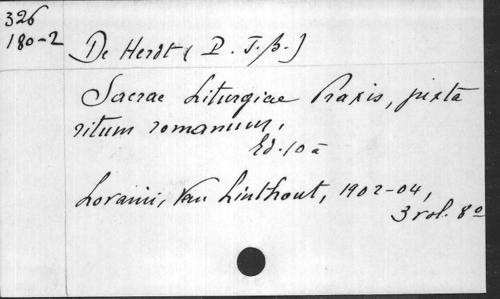 326
180-2
De Herdt (P. J. B.)
Sacrae Liturgiae Praxis, juxta
ritum romanum,
Ed. 10a
Lovanii, Van Linthout, 1902-04,
3 vol. 8o